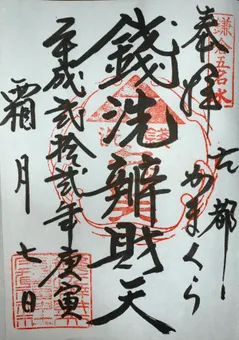 奉拝
鎌倉五名水
古都
かまくら
銭洗辨財天
平成弐拾弐年庚寅
霜月
七日